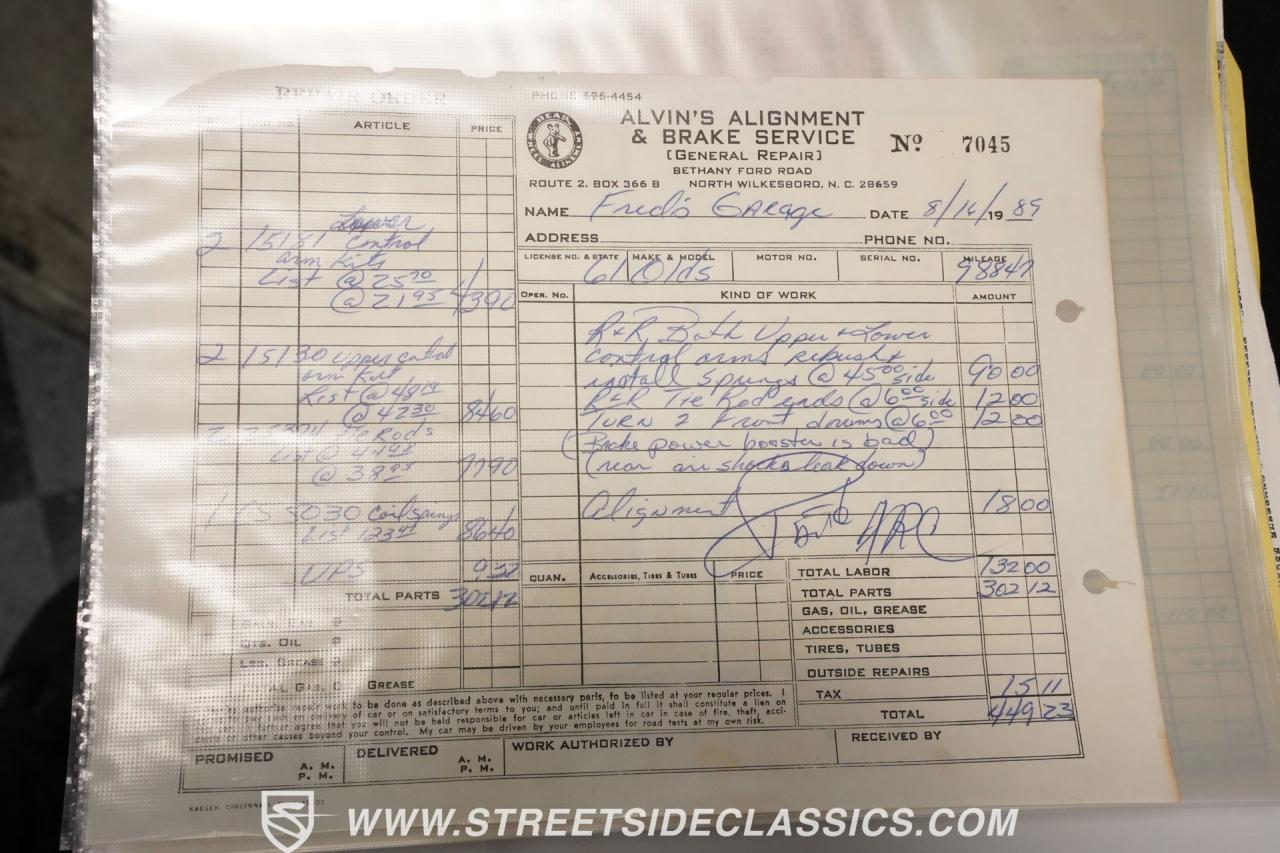 REPAIR ORDER
PHONE 696-4454
ALVIN'S ALIGNMENT
& BRAKE SERVICE
(GENERAL REPAIR)
BETHANY FORD ROAD
ROUTE 2, BOX 366 B NORTH WILKESBORO, N. C. 28659
Nº 7045
BEAR
NAME Fred's Garage DATE 8/16/1989
ADDRESS PHONE NO.
LICENSE NO. & STATE MAKE & MODEL MOTOR NO. SERIAL NO. MILEAGE
61 Olds 98847
ARTICLE PRICE
Lower
2 15151 Control
arm Kits
List @ 25 70
@ 21 95 43 90
2 15130 Upper control
arm Kit
List @ 48 19
@ 42 30 84 60
Tie Rods
List @
@ 38 95 77 90
1 Coil springs
List 123 41 86 40
UPS 9 32
TOTAL PARTS 302 12
QTS. OIL @
LBS. GREASE @
TOTAL GAS, GREASE
OPER. NO. KIND OF WORK AMOUNT
R & R Both Upper & Lower
control arms rebush &
install springs @ 45 00 side 90 00
R&R Tie Rod ends @ 6 00 side 12 00
TURN 2 Front drums @ 6 00 12 00
(Brake power booster is bad)
(rear air shocks leak down)
Alignment 18 00
QUAN. ACCESSORIES, TIRES & TUBES PRICE
TOTAL LABOR 132 00
TOTAL PARTS 302 12
GAS, OIL, GREASE
ACCESSORIES
TIRES, TUBES
OUTSIDE REPAIRS
TAX 15 11
TOTAL 449 23
authorize repair work to be done as described above with necessary parts, to be listed at your regular prices. I
to pay cash on delivery of car or on satisfactory terms to you; and until paid in full it shall constitute a lien on
further agree that you will not be held responsible for car or articles left in car in case of fire, theft, acci-
or other causes beyond your control. My car may be driven by your employees for road tests at my own risk.
PROMISED A. M. P. M. DELIVERED A. M. P. M. WORK AUTHORIZED BY RECEIVED BY
KAESER, CINCINNATI
WWW.STREETSIDECLASSICS.COM